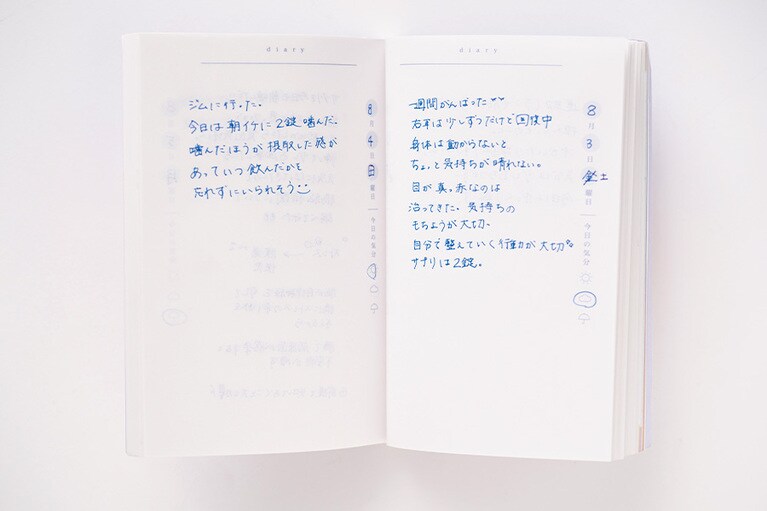 diary
8月3日土曜日
今日の気分
一週間がんばった
右耳は少しずつだけど回復中
身体は動からないと
ちょっと気持ちが晴れない。
目が真っ赤なのは
治ってきた。気持ちの
もちようが大切、
自分で整えていく行動が大切
サプリは2錠。
diary
8月4日日曜日
今日の気分
ジムに行った.
今日は朝イチに2錠噛んだ.
噛んだほうが摂取した感が
あっていつ飲んだかを
忘れずにいられそう